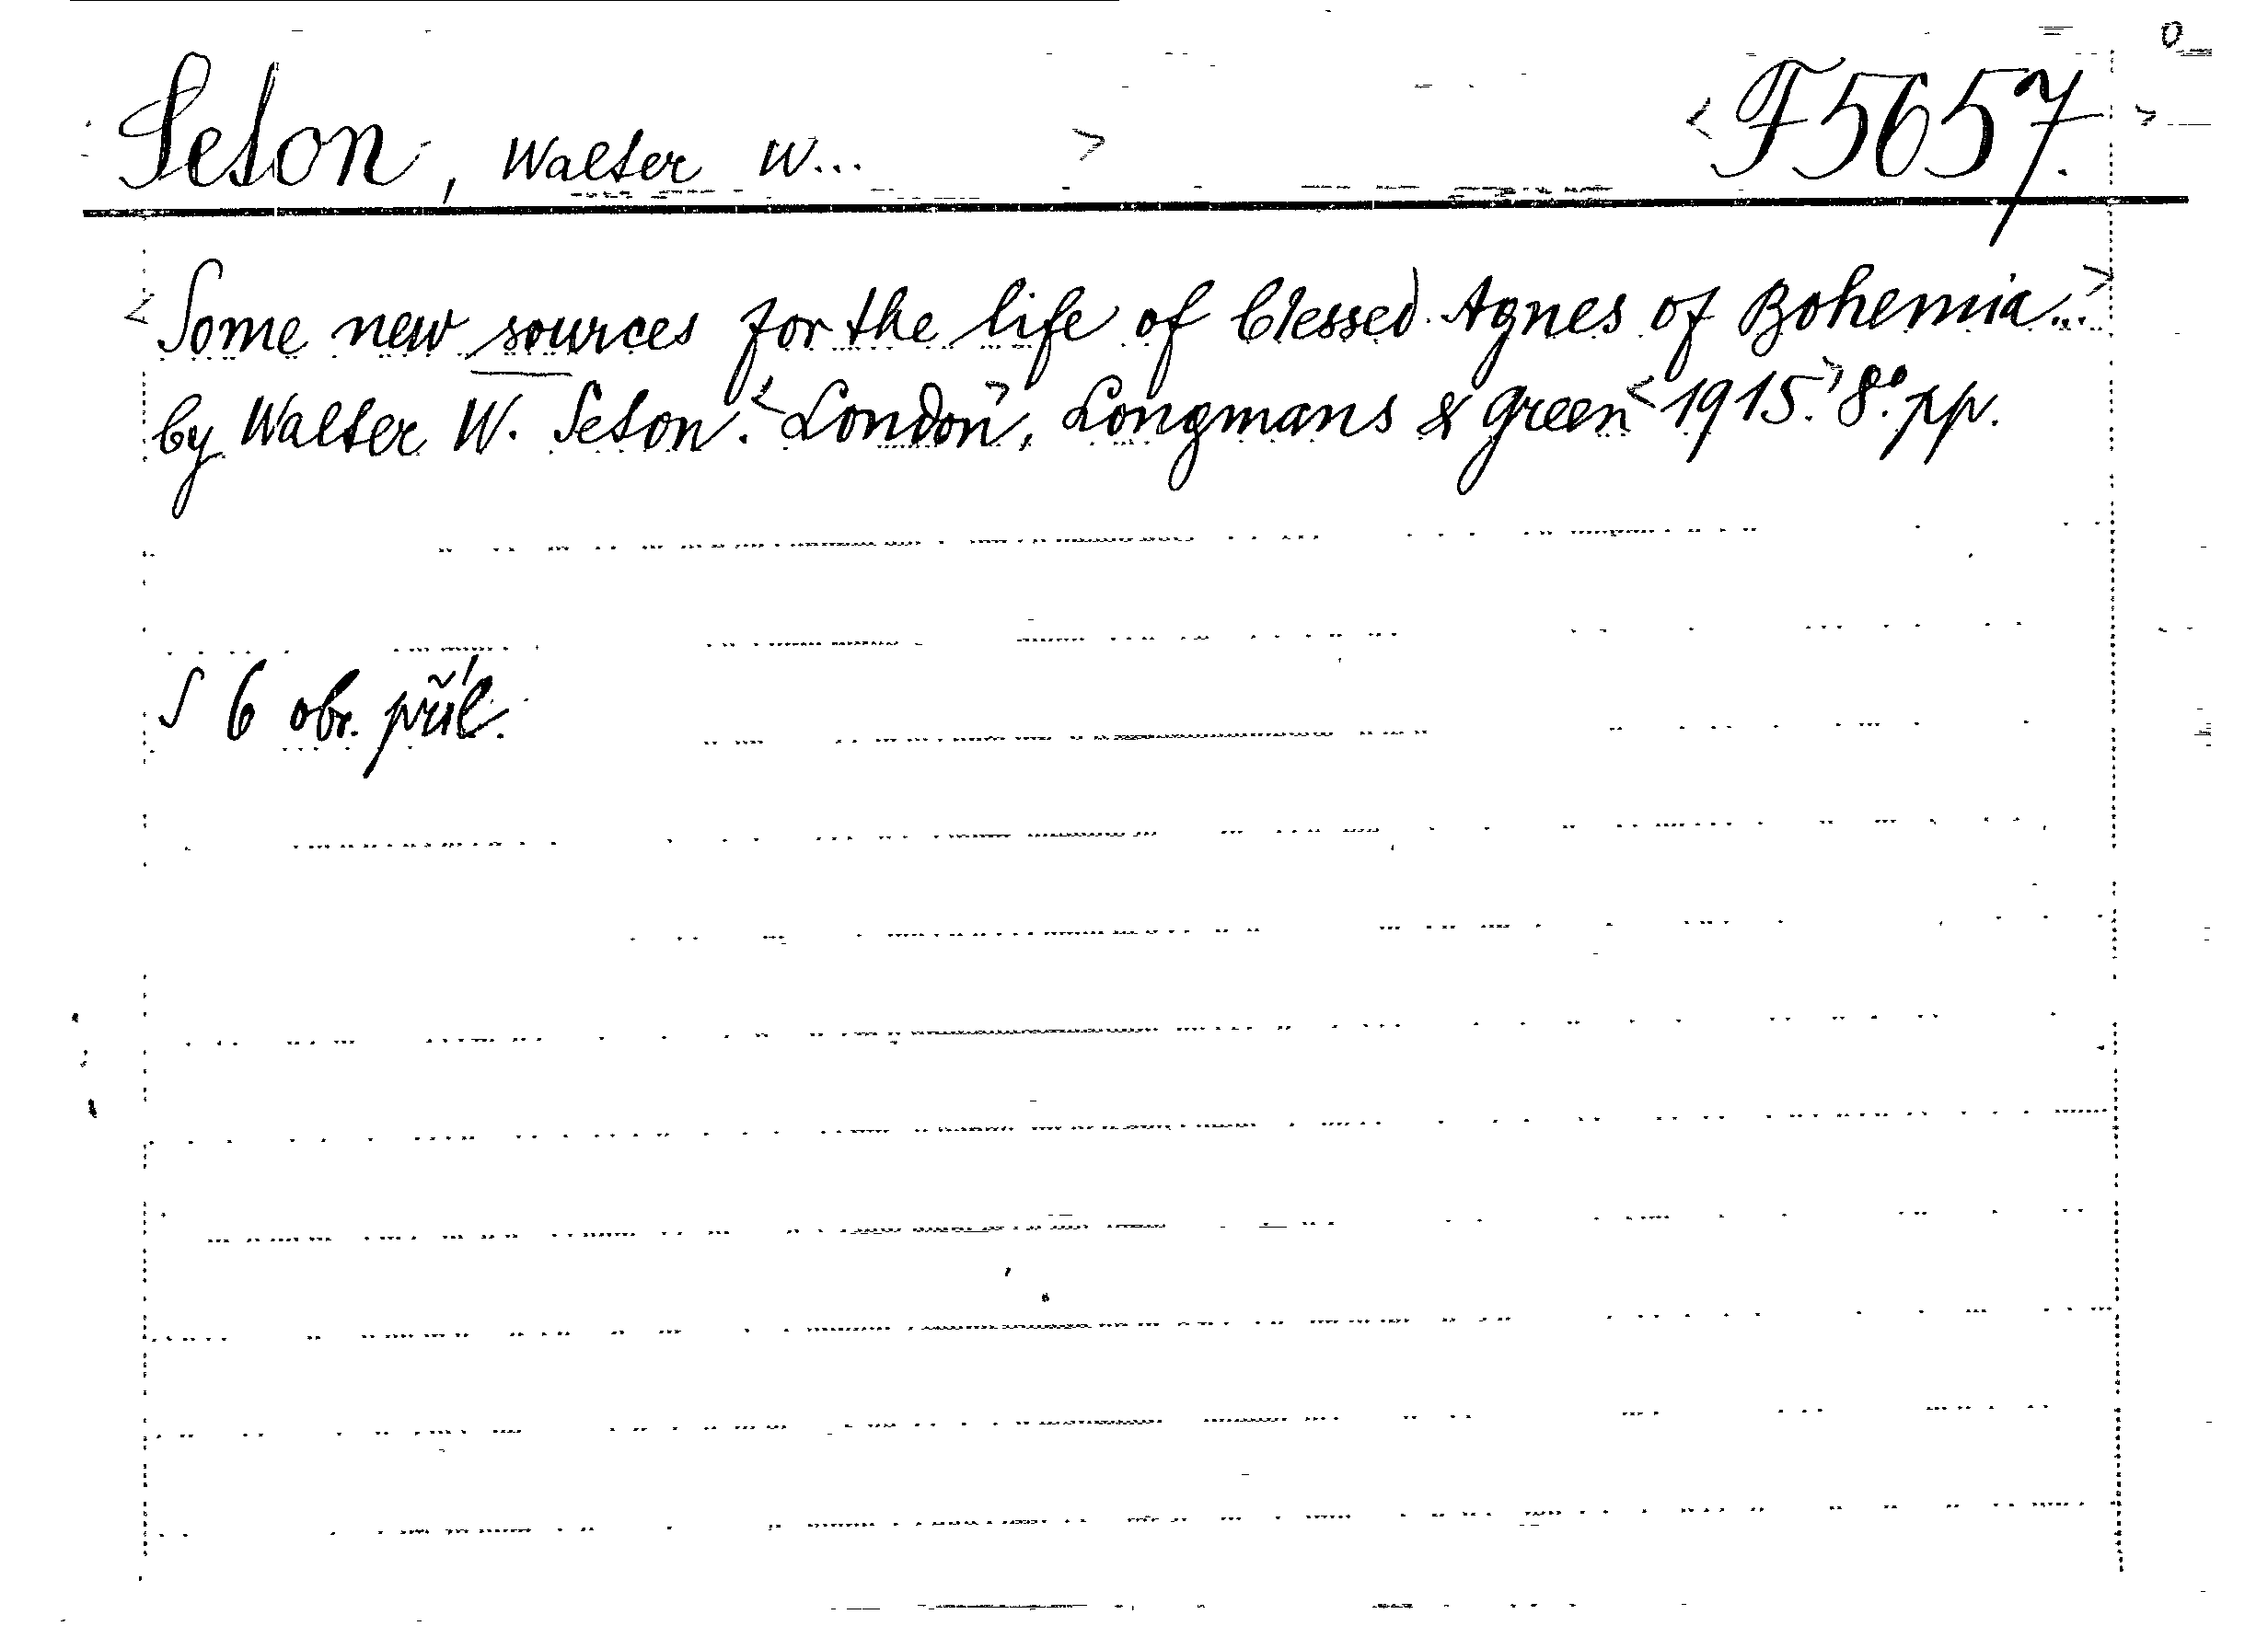 Seton, Walter W... > <F5657.>
<Some new sources for the life of blessed Agnes of Bohemia...>
by Walter W. Seton. <London>, Longmans & Green <1915.> 8°. pp.
S 6 obr. příl.